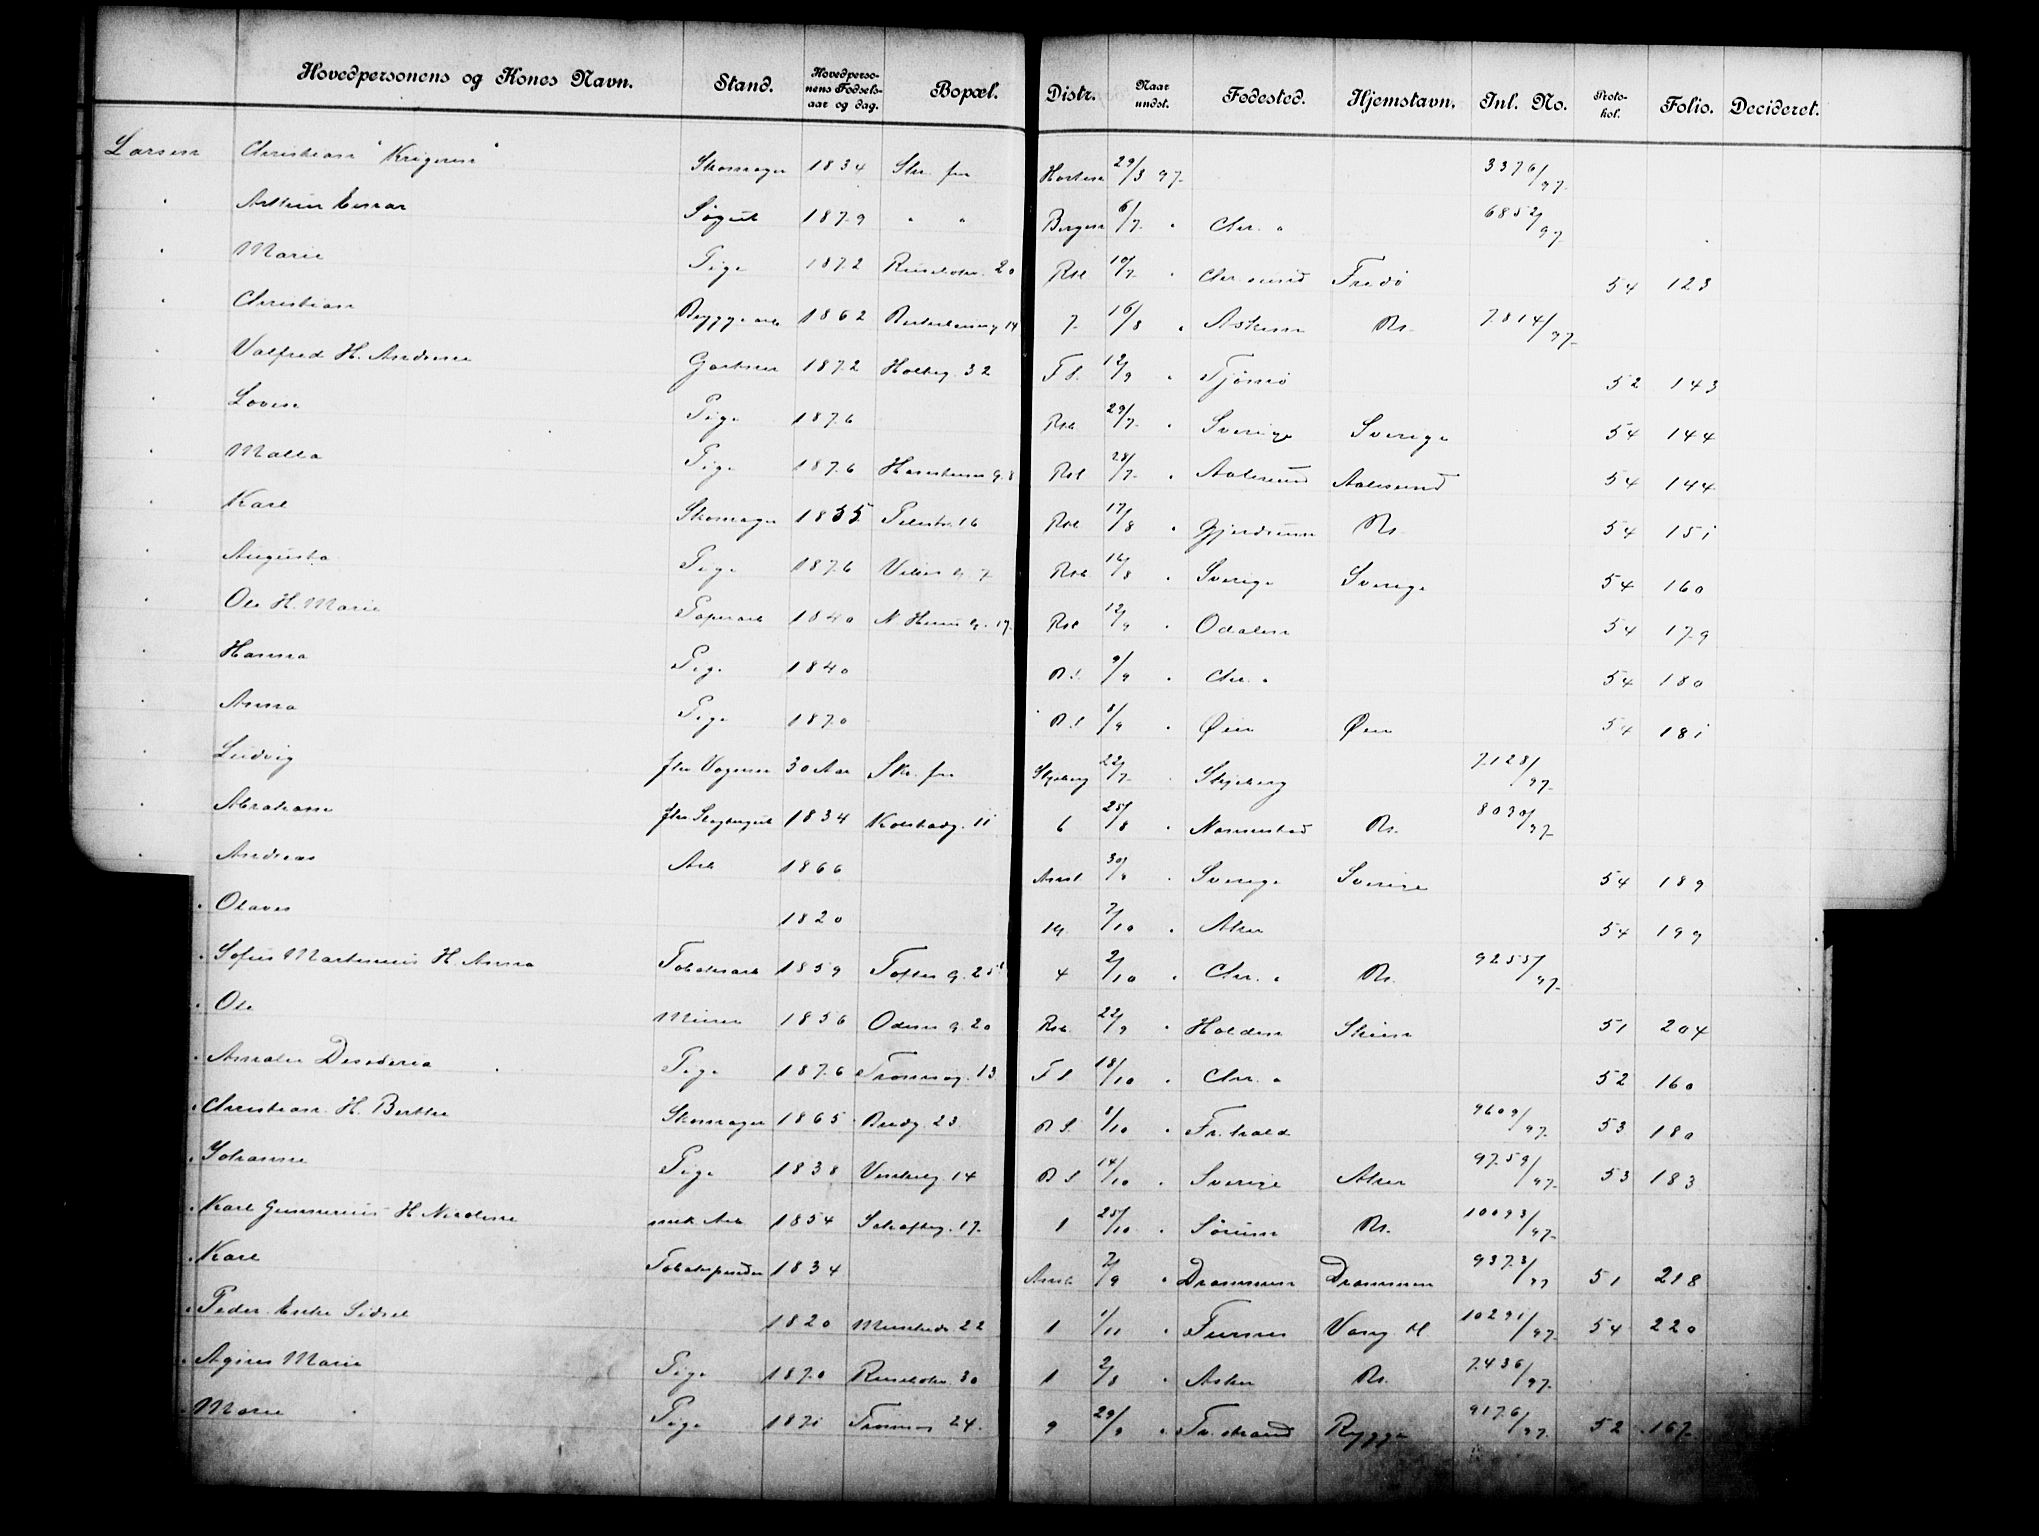 Hovedpersonens og Kones Navn. Stand. Hovedpersonens Fødselsaar og dag. Bopæl. Distr. Naar undst. Fødested. Hjemstavn. Inl. No. Protokol. Folio. Decideret.
Larsen Christian "Krigeren" Skomager 1834 Skr. fra Horten 29/3 97 3376/97
" Arthur Einar Søgut 1879 " " Bergen 6/7 " Chr. a 6852/97
" Marie Pige 1872 Ruseløkv. 20 Rst 10/7 " Chr.sund Fredø 54 123
" Christian Bryggearb 1862 14 7 16/8 " Askim Rs. 7814/97
" Valfred H. Andrine Gartner 1872 Holbg. 32 F S. 12/9 " Tjømø 52 143
" Lovise Pige 1876 Rst 29/7 " Sverige Sverige 54 144
" Malla Pige 1876 Rst 28/7 " Aalesund Aalesund 54 144
" Karl Skomager 1835 Pilestr. 16 Rst 17/8 " Gjerdrum Rs. 54 151
" Augusta Pige 1876 7 Rst 16/8 " Sverige Sverige 54 160
" Ole H. Marie Papirarb 1840 17 Rst 12/9 " Odalen 54 179
" Hanna Pige 1840 B S. 9/9 " Chr. a 54 180
" Anna Pige 1870 B S 8/9 " Øier Øier 54 181
" Ludvig 30 Aar Skr. fra Skjeberg 22/7 " Skjeberg 7128/97
" Abraham 1834 11 6 25/8 " Nannestad Rs. 8090/97
" Andreas Arb 1866 Amt 30/8 " Sverige Sverige 54 189
" Olaves 1820 14 7/10 " Aker 54 199
" Sofus Martinius H. Anna Tobaksarb 1859 Toftes g. 25 4 2/10 " Chr. a Rs. 9255/97
" Ole Murer 1856 Odins g. 20 Rst 22/9 " Holden Skien 51 204
" Amalie Desideria Pige 1876 Tromsøg. 13 F S 18/10 " Chr. a 52 160
" Christian H. Berthe Skomager 1865 23 B S. 8/10 " Fr. hald 9609/97 53 180
" Johanne Pige 1838 14 B S 14/10 " Sverige Aker 9759/97 53 183
" Karl Gunnerius H. Nicoline mek Arb 1854 Schaftbg. 17 1 25/10 " Sørum Rs. 10093/97
" Karl Tobakspinder 1834 Amt 7/9 " Drammen Drammen 9373/97 51 218
" Peder Enke Sidsel 1820 Munkeds. 22 1 1/11 " Furnes Vang H. 10291/97 54 220
" Agnes Marie Pige 1870 Ruseløkv 30 1 2/8 " Asker Rs. 7436/97
" Marie Pige 1871 Tromsøg 24. 9 29/9 " Fr. strand Rygge 9176/97 52 167